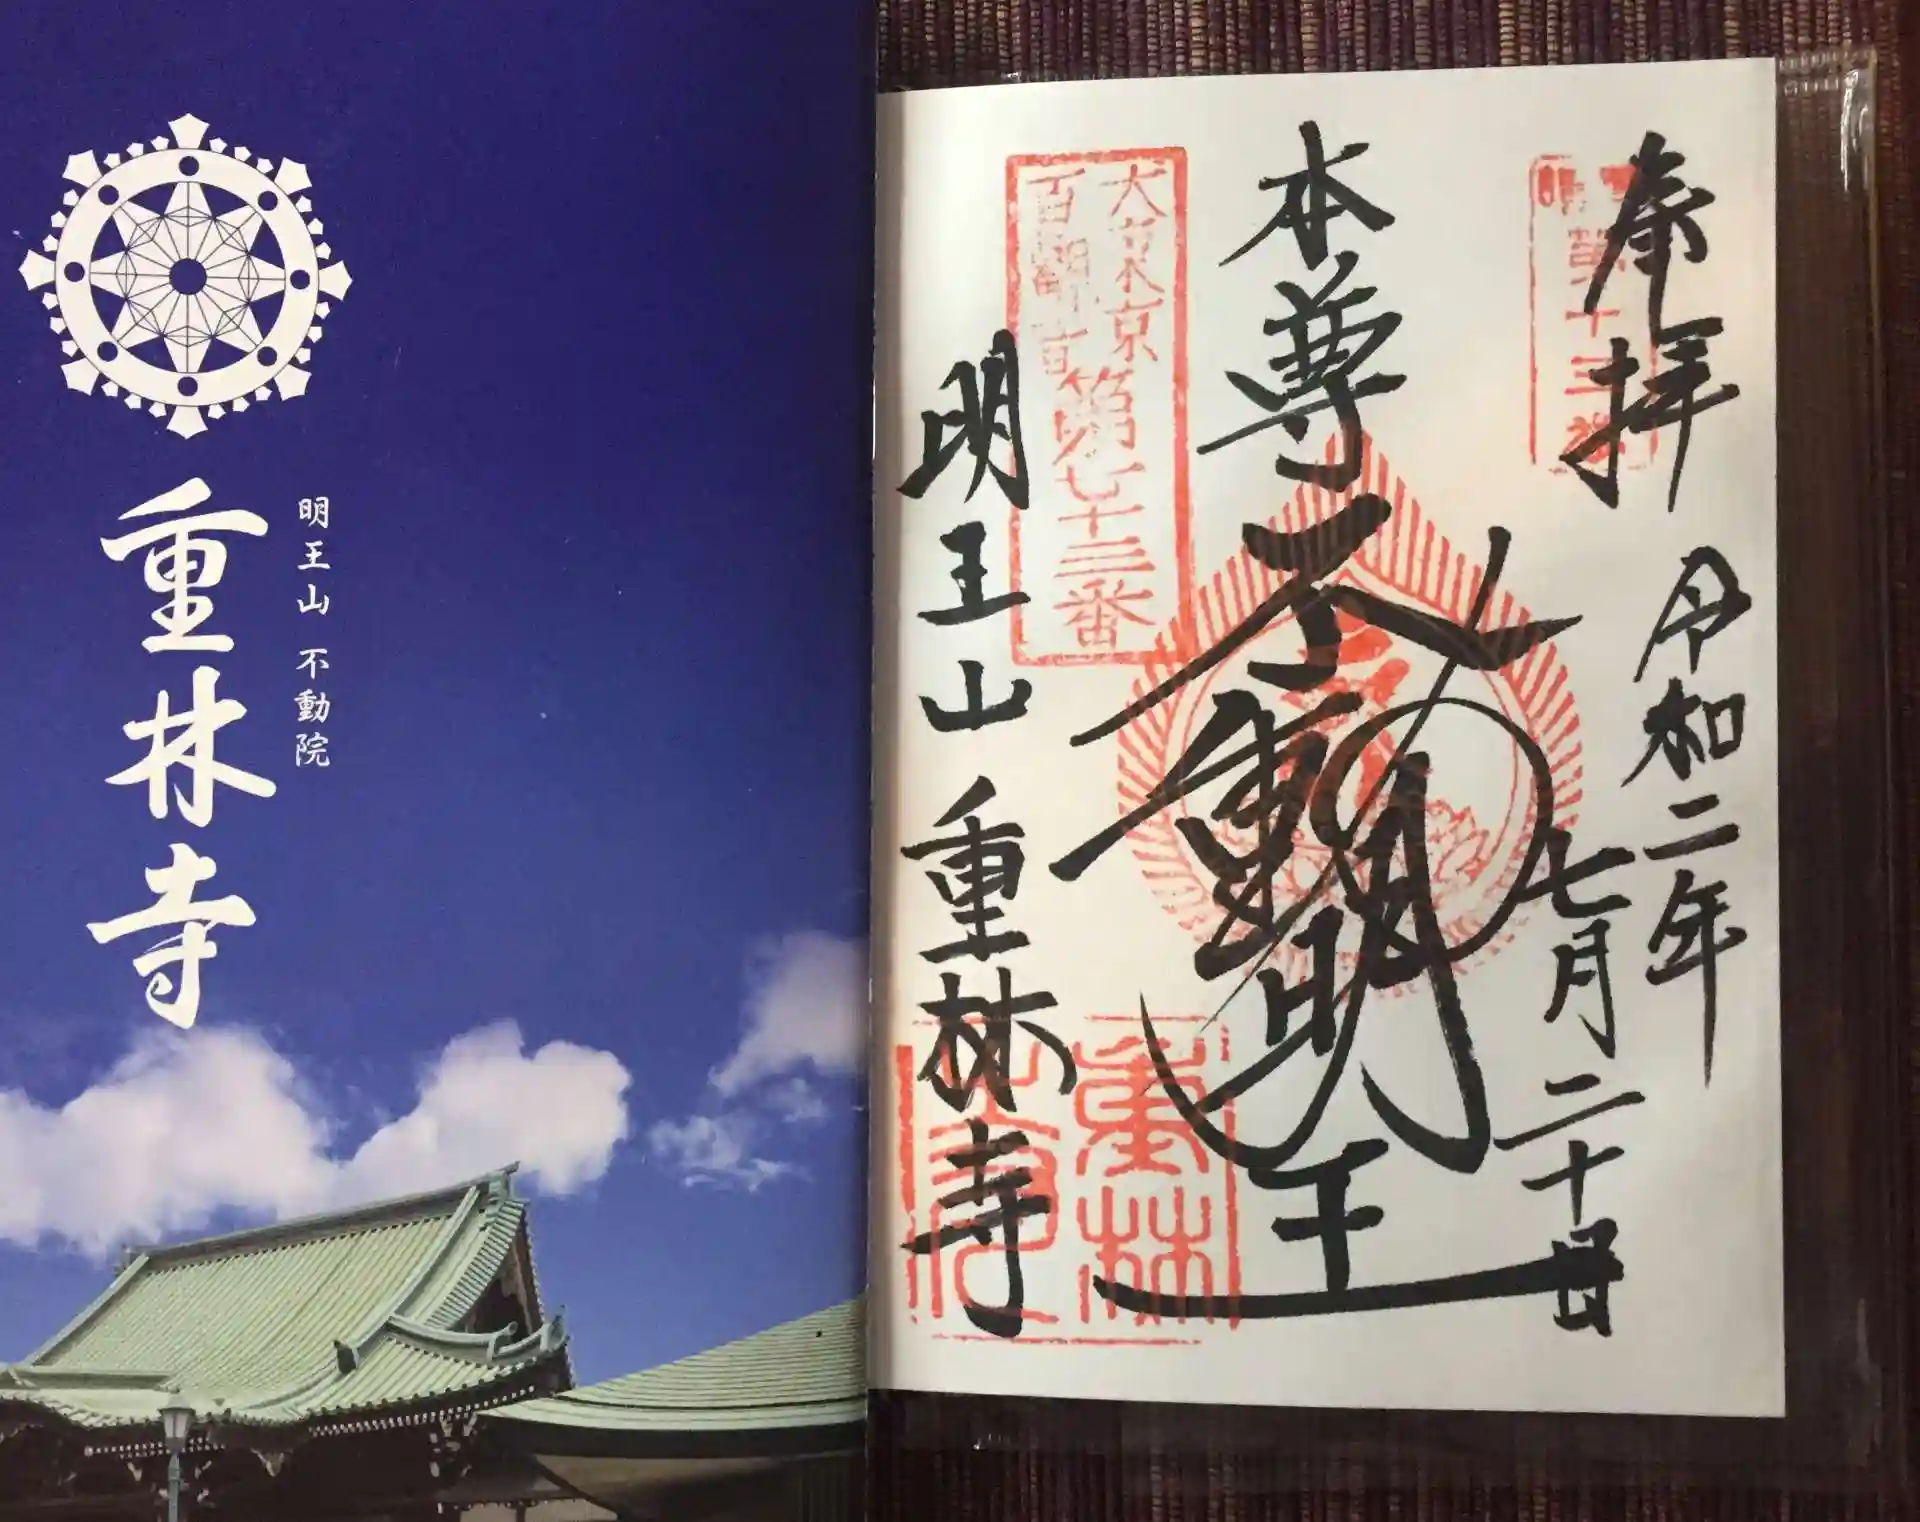 明王山 不動院
重林寺
奉拝
令和二年
七月二十四日
本尊
不動明王
明王山 重林寺
大東京
百観音
第七十三番
重林